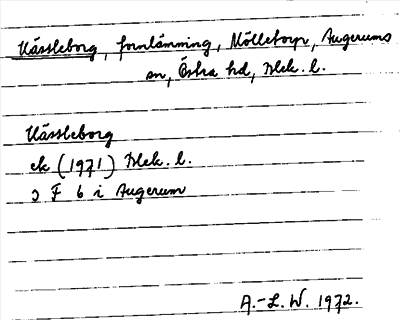 Västleborg, fornlämning, Mölletorp, Augerums
sn, Östra hd, Blek. l.
Västleborg
ek (1971) Blek. l.
ɔ F 6 i Augerum
A.-L. W. 1972.